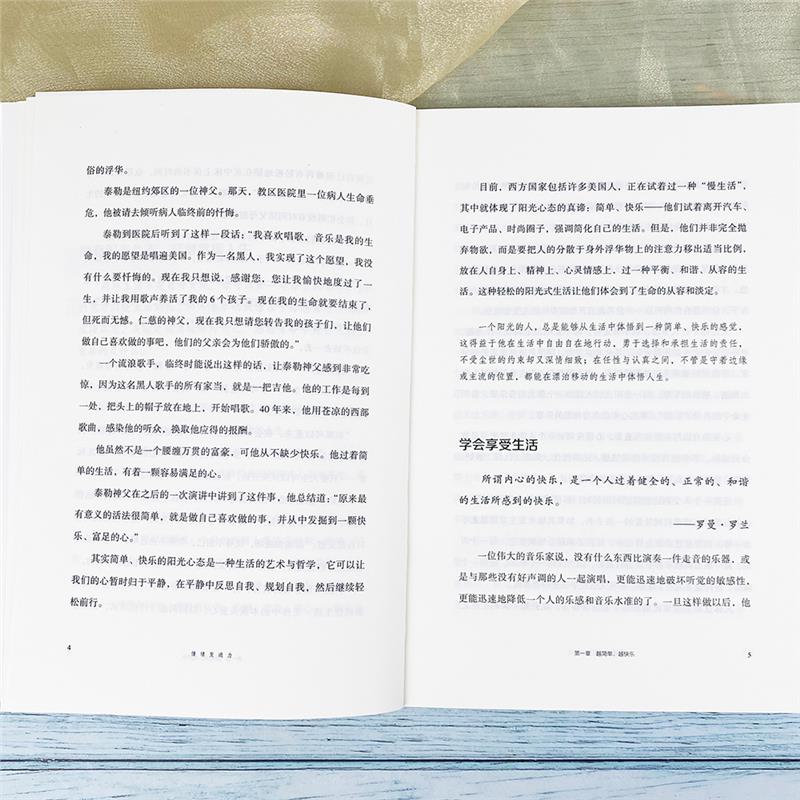 俗的浮华。
泰勒是纽约郊区的一位神父。那天，教区医院里一位病人生命垂
危，他被请去倾听病人临终前的忏悔。
泰勒到医院后听到了这样一段话：“我喜欢唱歌，音乐是我的生
命，我的愿望是唱遍美国。作为一名黑人，我实现了这个愿望，我没
有什么要忏悔的。现在我只想说，感谢您，您让我愉快地度过了一
生，并让我用歌声养活了我的 6 个孩子。现在我的生命就要结束了，
但死而无憾。仁慈的神父，现在我只想请您转告我的孩子们，让他们
做自己喜欢做的事吧，他们的父亲会为他们骄傲的。”
一个流浪歌手，临终时能说出这样的话，让泰勒神父感到非常吃
惊，因为这名黑人歌手的所有家当，就是一把吉他。他的工作是每到
一处，把头上的帽子放在地上，开始唱歌。40 年来，他用苍凉的西部
歌曲，感染他的听众，换取他应得的报酬。
他虽然不是一个腰缠万贯的富豪，可他从不缺少快乐。他过着简
单的生活，有着一颗容易满足的心。
泰勒神父在之后的一次演讲中讲到了这件事，他总结道：“原来最
有意义的活法很简单，就是做自己喜欢做的事，并从中发掘到一颗快
乐、富足的心。”
其实简单、快乐的阳光心态是一种生活的艺术与哲学，它可以让
我们的心暂时归于平静，在平静中反思自我、规划自我，然后继续轻
松前行。
4
情绪发动力
目前，西方国家包括许多美国人，正在试着过一种“慢生活”，
其中就体现了阳光心态的真谛：简单、快乐——他们试着离开汽车、
电子产品、时尚圈子，强调简化自己的生活。但是，他们并非完全抛
弃物欲，而是要把人的分散于身外浮华物上的注意力移出适当比例，
放在人自身上、精神上、心灵情感上，过一种平衡、和谐、从容的生
活。这种轻松的阳光式生活让他们体会到了生命的从容和淡定。
一个阳光的人，总是能够从生活中体悟到一种简单、快乐的感觉，
这得益于他在生活中自由自在地行动，勇于选择和承担生活的责任，
不受尘世的约束却又深情细致；在任性与认真之间，不管是守着边缘
或主流的位置，都能在漂泊移动的生活中体悟人生。
学会享受生活
所谓内心的快乐，是一个人过着健全的、正常的、和谐
的生活所感到的快乐。
——罗曼·罗兰
一位伟大的音乐家说，没有什么东西比演奏一件走音的乐器，或
是与那些没有好声调的人一起演唱，更能迅速地破坏听觉的敏感性，
更能迅速地降低一个人的乐感和音乐水准的了。一旦这样做以后，他
第一章 越简单，越快乐
5